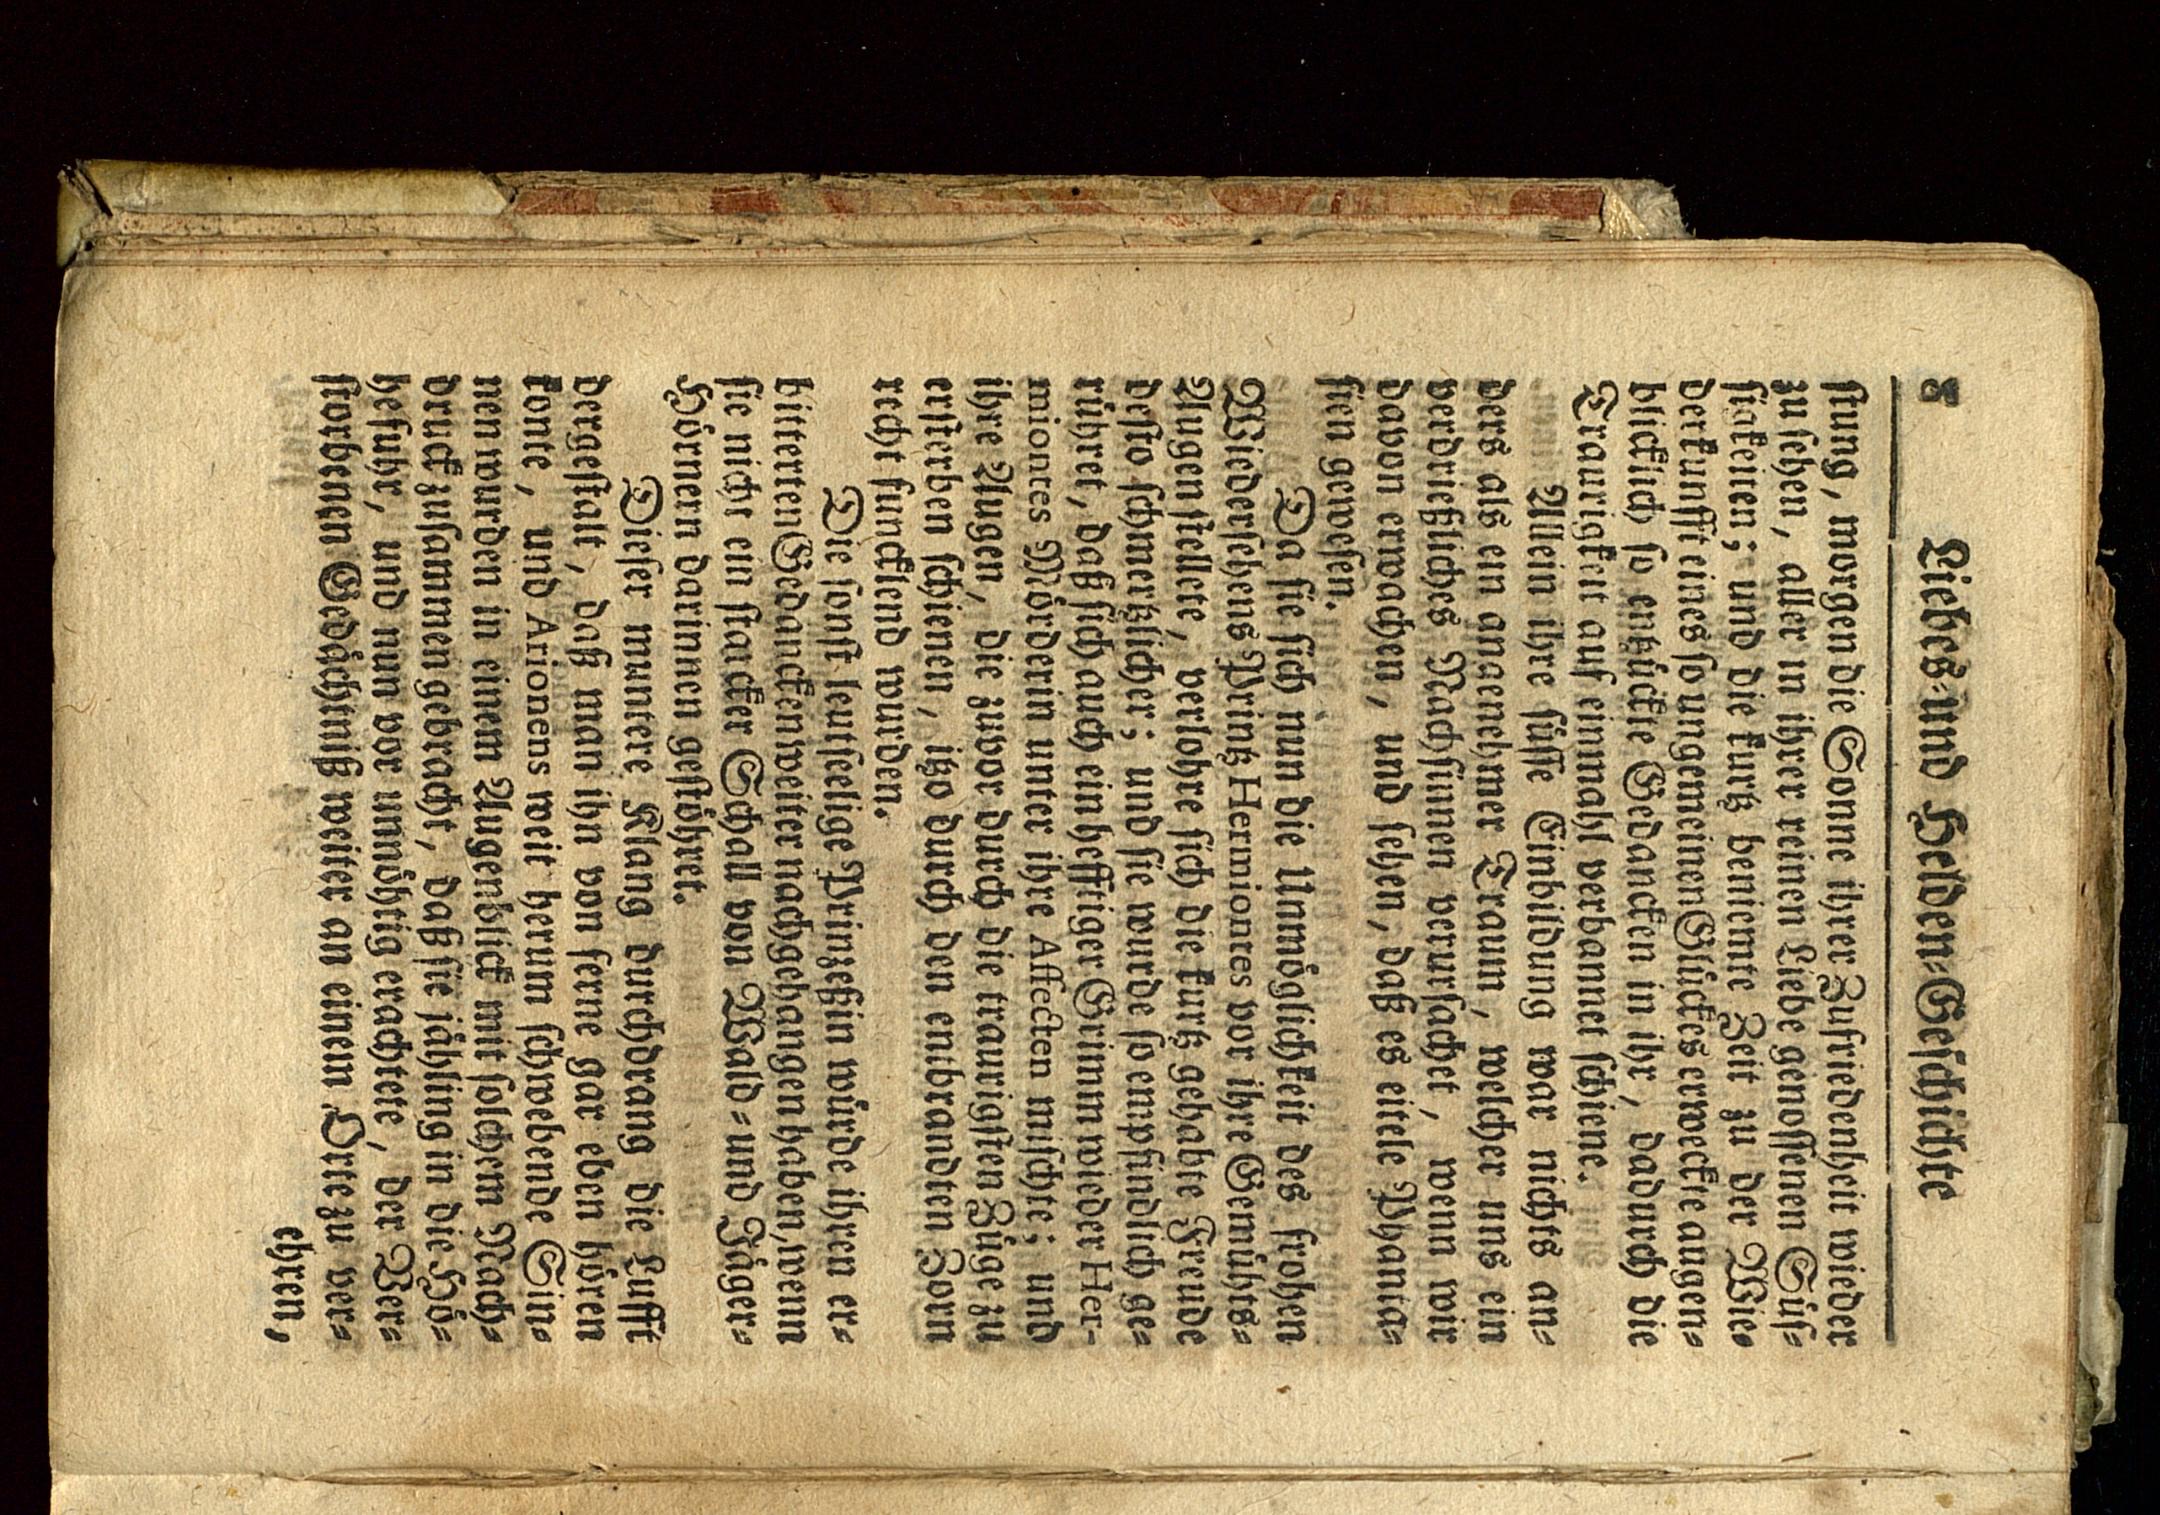 8 Liebes- und Helden-Geschichte
stung, morgen die Sonne ihrer Zufriedenheit wieder
zu sehen, aller in ihrer reinen Liebe genossenen Süs-
sigkeiten; und die kurtz beniemte Zeit zu der Wie-
derkunfft eines so ungemeinen Glückes erweckte augen-
blicklich so entzückte Gedancken in ihr, dadurch die
Traurigkeit auf einmahl verbannet schiene.
Allein ihre süsse Einbildung war nichts an-
ders als ein angenehmer Traum, welcher uns ein
verdrießliches Nachsinnen verursachet, wenn wir
davon erwachen, und sehen, daß es eitele Phanta-
sien gewesen.
Da sie sich nun die Unmöglichkeit des frohen
Wiedersehens Printz Hermiontes vor ihre Gemühts-
Augen stellete, verlohre sich die kurtz gehabte Freude
desto schmertzlicher; und sie wurde so empfindlich ge-
rühret, daß sich auch ein hefftiger Grimm wieder Her-
miontes Mörderin unter ihre Affecten mischte; und
ihre Augen, die zuvor durch die traurigsten Züge zu
ersterben schienen, itzo durch den entbrandten Zorn
recht funcklend wurden.
Die sonst leutseelige Printzeßin würde ihren er-
bitterten Gedancken weiter nachgehangen haben, wenn
sie nicht ein starcker Schall von Wald- und Jäger-
Hörnern darinnen gestöhret.
Dieser muntere Klang durchdrang die Lufft
dergestalt, daß man ihn von ferne gar eben hören
konte, und Arionens weit herum schwebende Sin-
nen wurden in einem Augenblick mit solchem Nach-
druck zusammen gebracht, daß sie jähling in die Hö-
he fuhr, und nun vor unnöhtig erachtete, der Ver-
storbenen Gedächtniß weiter an einem Orte zu ver-
ehren,